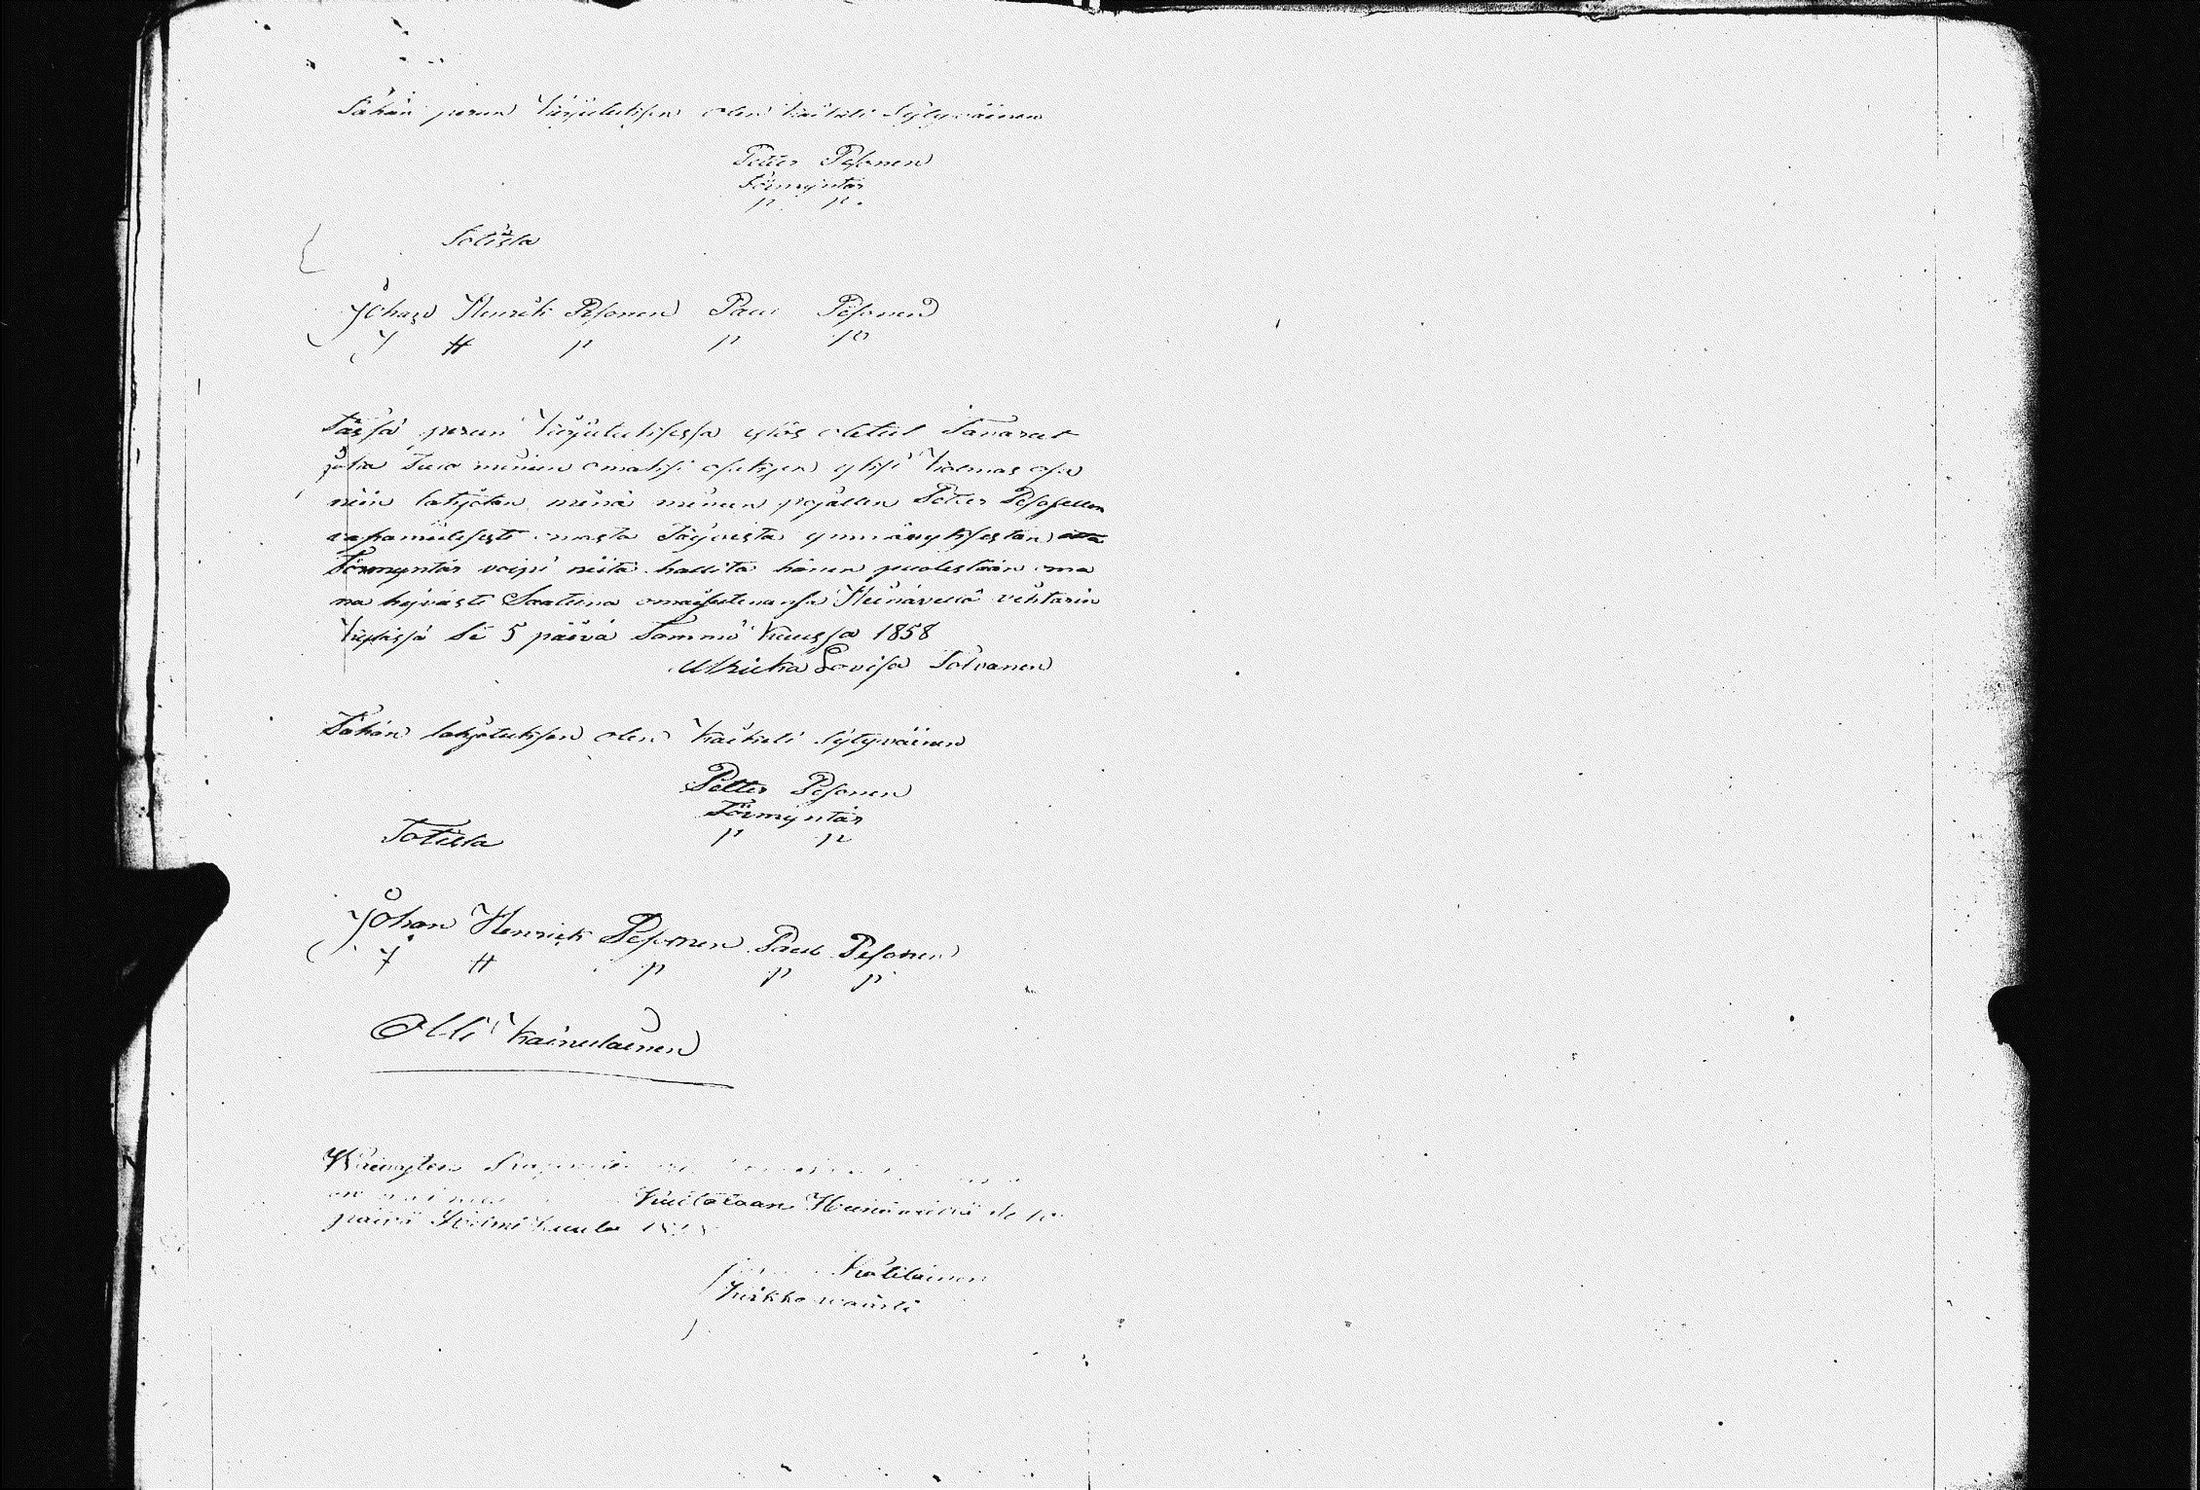 Tähän perun Kirjutuksen olen kaikiti Tytyväinen
Petter Pesonen
Förmyntär
p p.
Totista
Johan Henrik Pesonen Paul Pesonen
J H P P P
Tässä perun Kirjutuksessa ylös otetut Tavarat
joka Tuva minun omaksi osaksen yksi kolmas osa
niin lahjotan minä minun pojallen Petter Pesosellen
vapamielisesti omasta Täyvestä ymmäryksestän että
Förmyntär voipi niitä hallita hänen puolestaan oma
na hyvästi Saatuna omaisutenansa Heinävesiä vihtarin
Kylässä Se 5 päivä Tammi Kuussa 1858
Ulricka Lovisa Tolvanen
Tähän lahjotuksen olen kaikiti Tytyväinen
Petter Pesonen
Förmyntär
p p
Totista
Johan Henrick Pesonen Paul Pesonen
J H P P P
Olli Kainulainen
Kuitataan Heinävesiä se 10
päivä Helmi kuulta
Kirkko waarti